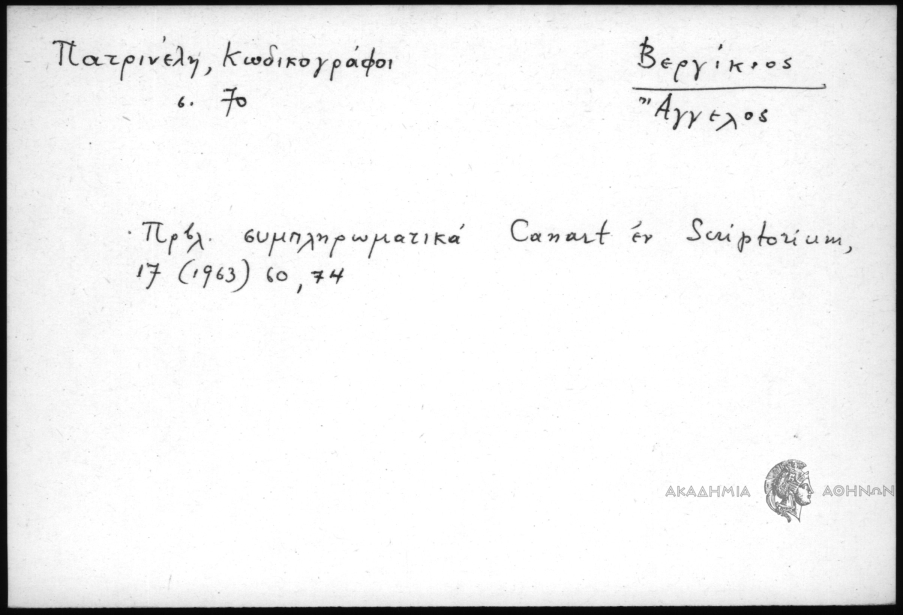 Πατρινέλη, Κωδικογράφοι
σ. 70
Βεργίκιος
Ἄγγελος
Πρβλ. συμπληρωματικά Canart ἐν Scriptorium,
17 (1963) 60, 74
ΑΚΑΔΗΜΙΑ ΑΘΗΝΩΝ